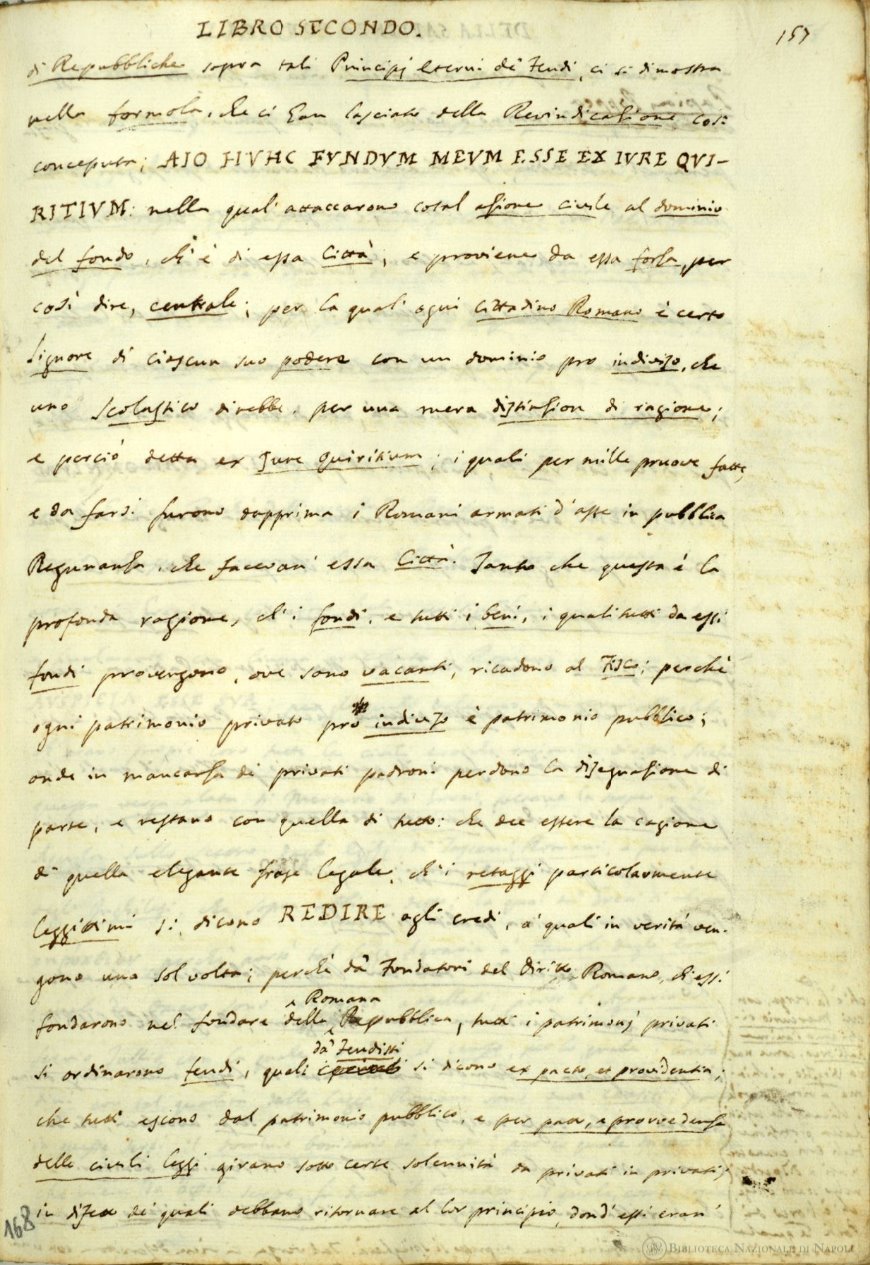 LIBRO SECONDO.
157
di Repubbliche sopra tali Principj Eterni de' Feudi, ci si dimostra
nella formola, che ci han lasciato della Revindicazione così
conceputa; AIO HVNC FVNDVM MEVM ESSE EX IVRE QVI-
RITIVM: nella quale attaccarono cotal azione civile al dominio
del fondo, ch'è di essa Città; e proviene da essa forza, per
così dire, centrale; per la quale ogni Cittadino Romano è certo
Signore di ciascun suo podere con un dominio pro indiviso, che
uno Scolastico direbbe per una mera distinzion di ragione;
e perciò detta ex Jure Quiritium; i quali per mille pruove fatte,
e da farsi furono dapprima i Romani armati d'aste in pubblica
Ragunanza, che facevan essa Città. Tanto che questa è la
profonda ragione, ch'i fondi, e tutti i beni, i quali tutti da essi
fondi provengono, ove sono vacanti, ricadono al Fisco; perchè
ogni patrimonio privato pro indiviso è patrimonio pubblico;
onde in mancanza di privati padroni perdono la disegnazione di
parte, e restano con quella di tutto: che dee essere la cagione
di quella elegante frase legale, ch'i retaggi particolarmente
leggittimi si dicono REDIRE agli eredi, a' quali in verità ven-
gono una sol volta; perchè da' Fondatori del Diritto Romano, ch'essi
fondarono nel fondare della Romana Repubblica, tutti i patrimonj privati
si ordinarono feudi, quali da' Feudisti si dicono ex pacto, et providentia;
che tutti escono dal patrimonio pubblico, e per patto, e provvedenza
delle civili leggi girano sotto certe solennità da privati in privati,
in difetto de' quali debbano ritornare al lor principio, dond'essi eran'
168
BIBLIOTECA NAZIONALE DI NAPOLI